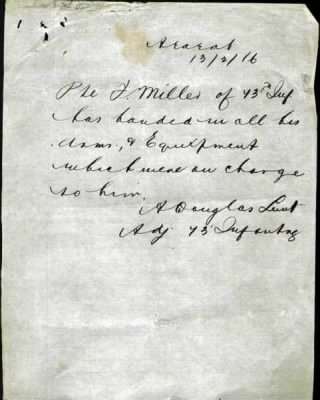 Ararat
13/3/16
Pte J. Miller of 73rd Inf
has handed in all his
Arms, & Equipment
which were on charge
to him.
A Douglas Lieut
Adj 73 Infantry